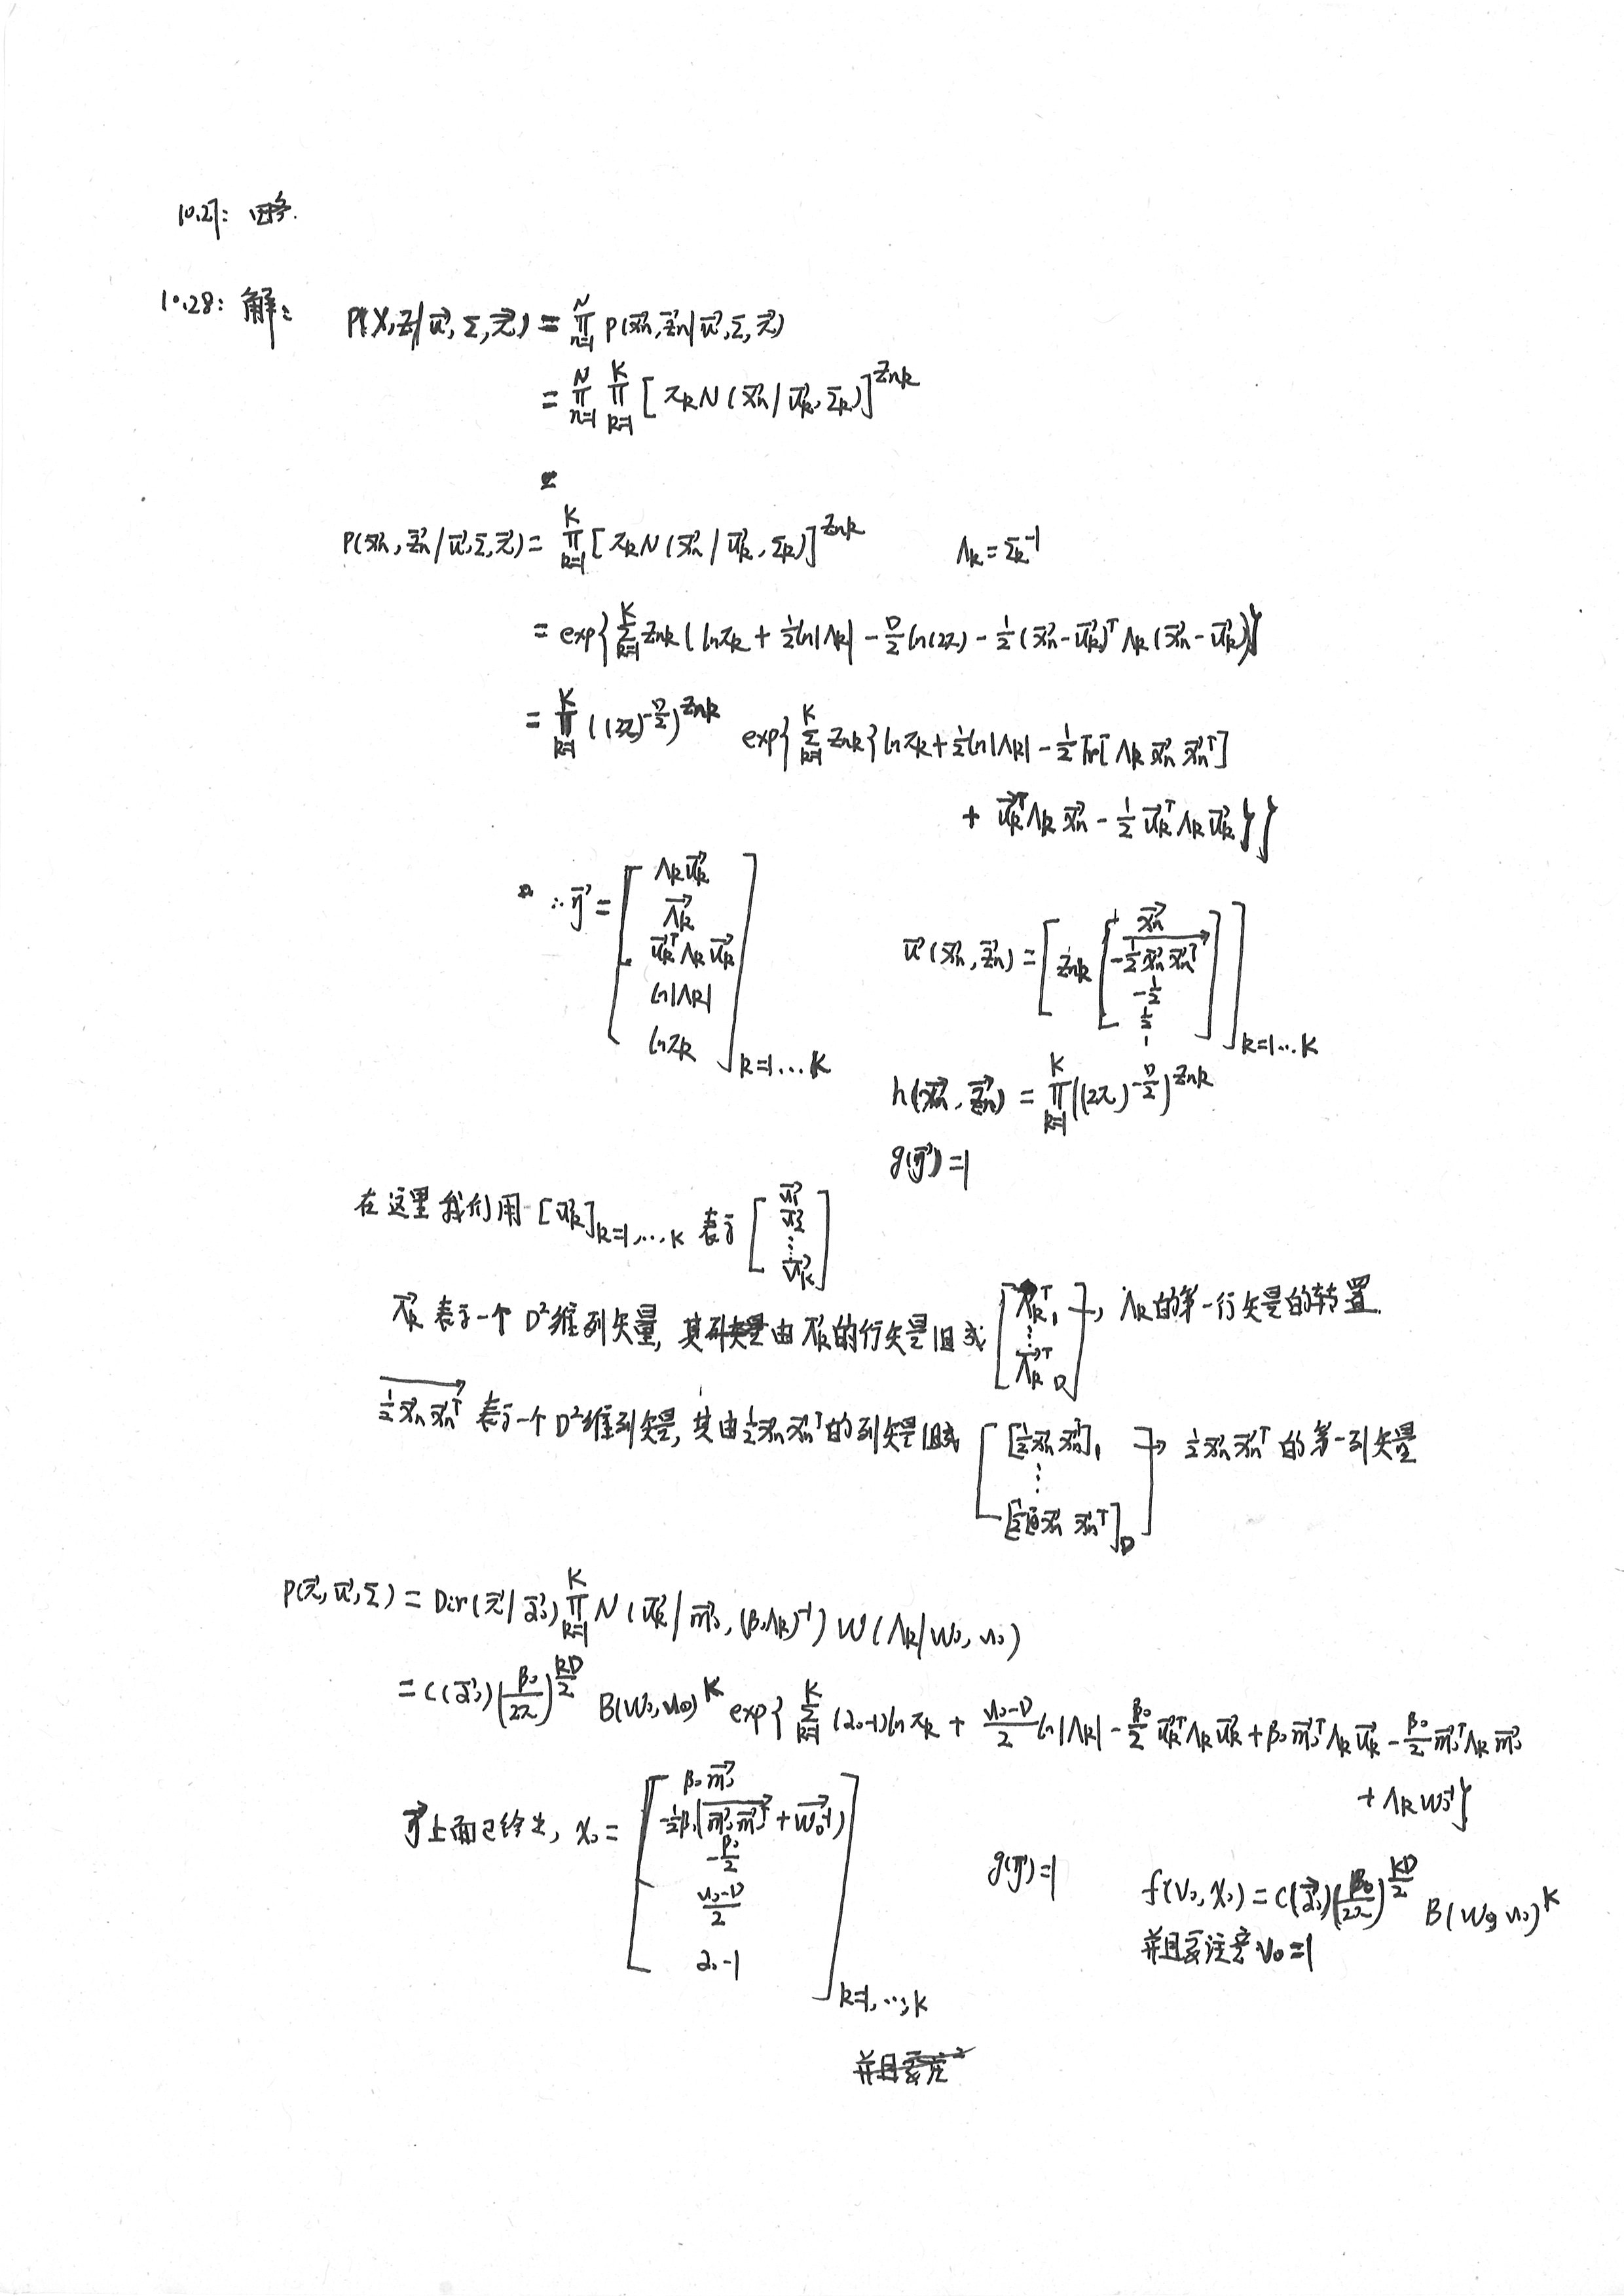 10.27: 略.
10.28: 解:
P(X,Z|μ⃗,Σ,π⃗) = ∏_{n=1}^{N} P(x⃗n,z⃗n|μ⃗,Σ,π⃗)
= ∏_{n=1}^{N} ∏_{k=1}^{K} [πk N(x⃗n|μ⃗k,Σk)]^{Znk}
P(x⃗n,z⃗n|μ⃗,Σ,π⃗) = ∏_{k=1}^{K} [πk N(x⃗n|μ⃗k,Σk)]^{Znk} Λk = Σk^{-1}
= exp{∑_{k=1}^{K} Znk(lnπk + ½ln|Λk| - D/2 ln(2π) - ½(x⃗n-μ⃗k)^T Λk(x⃗n-μ⃗k))}
= ∏_{k=1}^{K} ((2π)^{-D/2})^{Znk} exp{∑_{k=1}^{K} Znk{lnπk + ½ln|Λk| - ½Tr[Λk x⃗n x⃗n^T]
+ μ⃗k^T Λk x⃗n - ½ μ⃗k^T Λk μ⃗k}}
∴ η⃗ = [Λk μ⃗k; Λ⃗k; μ⃗k^T Λk μ⃗k; ln|Λk|; lnπk]_{k=1...K}
u⃗(x⃗n,z⃗n) = [Znk [x⃗n; -½x⃗n x⃗n^T; -½; ½; 1]]_{k=1...K}
h(x⃗n,z⃗n) = ∏_{k=1}^{K} ((2π)^{-D/2})^{Znk}
g(η⃗)=1
在这里我们用 [μ⃗k]_{k=1,...K} 表示 [μ⃗1; μ⃗2; ⋮; μ⃗K]
Λ⃗k 表示一个D²维列矢量, 其由Λ⃗k的行矢量组成 [Λ⃗k^T 1; ⋮; Λ⃗k^T D] → Λk的第一行矢量的转置.
½x⃗n x⃗n^T 表示一个D²维列矢量, 其由½x⃗n x⃗n^T的列矢量组成 [[½x⃗n x⃗n^T]1; ⋮; [½x⃗n x⃗n^T]D] → ½x⃗n x⃗n^T 的第一列矢量
P(π⃗,μ⃗,Σ) = Dir(π⃗|α⃗0) ∏_{k=1}^{K} N(μ⃗k|m⃗0,(β0Λk)^{-1}) W(Λk|W0,ν0)
= C(α⃗0)(β0/2π)^{KD/2} B(W0,ν0)^K exp{∑_{k=1}^{K} (α0-1)lnπk + (ν0-D)/2 ln|Λk| - β0/2 μ⃗k^T Λk μ⃗k + β0 m⃗0^T Λk μ⃗k - β0/2 m⃗0^T Λk m⃗0
+ Λk W0^{-1}}
η⃗上面已给出, χ0 = [β0 m⃗0; -½β0(m⃗0 m⃗0^T + W0^{-1}); -β0/2; (ν0-D)/2; α0-1]_{k=1,...,K}
g(η⃗)=1
f(ν0,χ0) = C(α⃗0)(β0/2π)^{KD/2} B(W0,ν0)^K
并且要注意 ν0=1